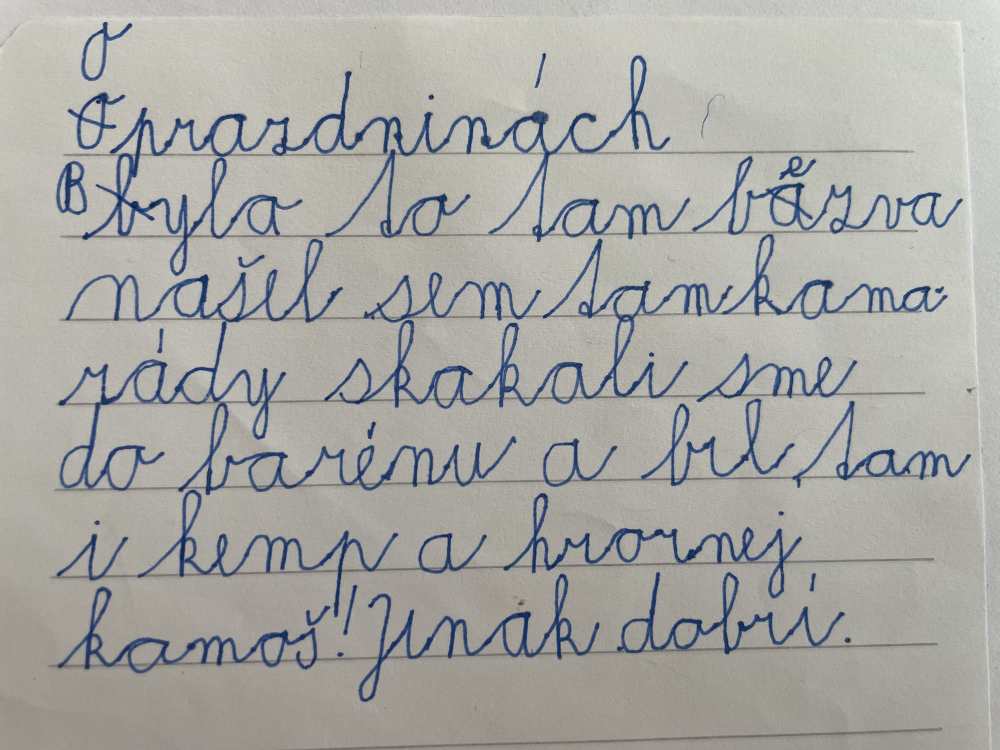 O prazdninách
Byla to tam bězva
našel sem tam kama
rády skakali sme
do barénu a bil tam
i kemp a hroznej
kamoš! Jinak dobrí.